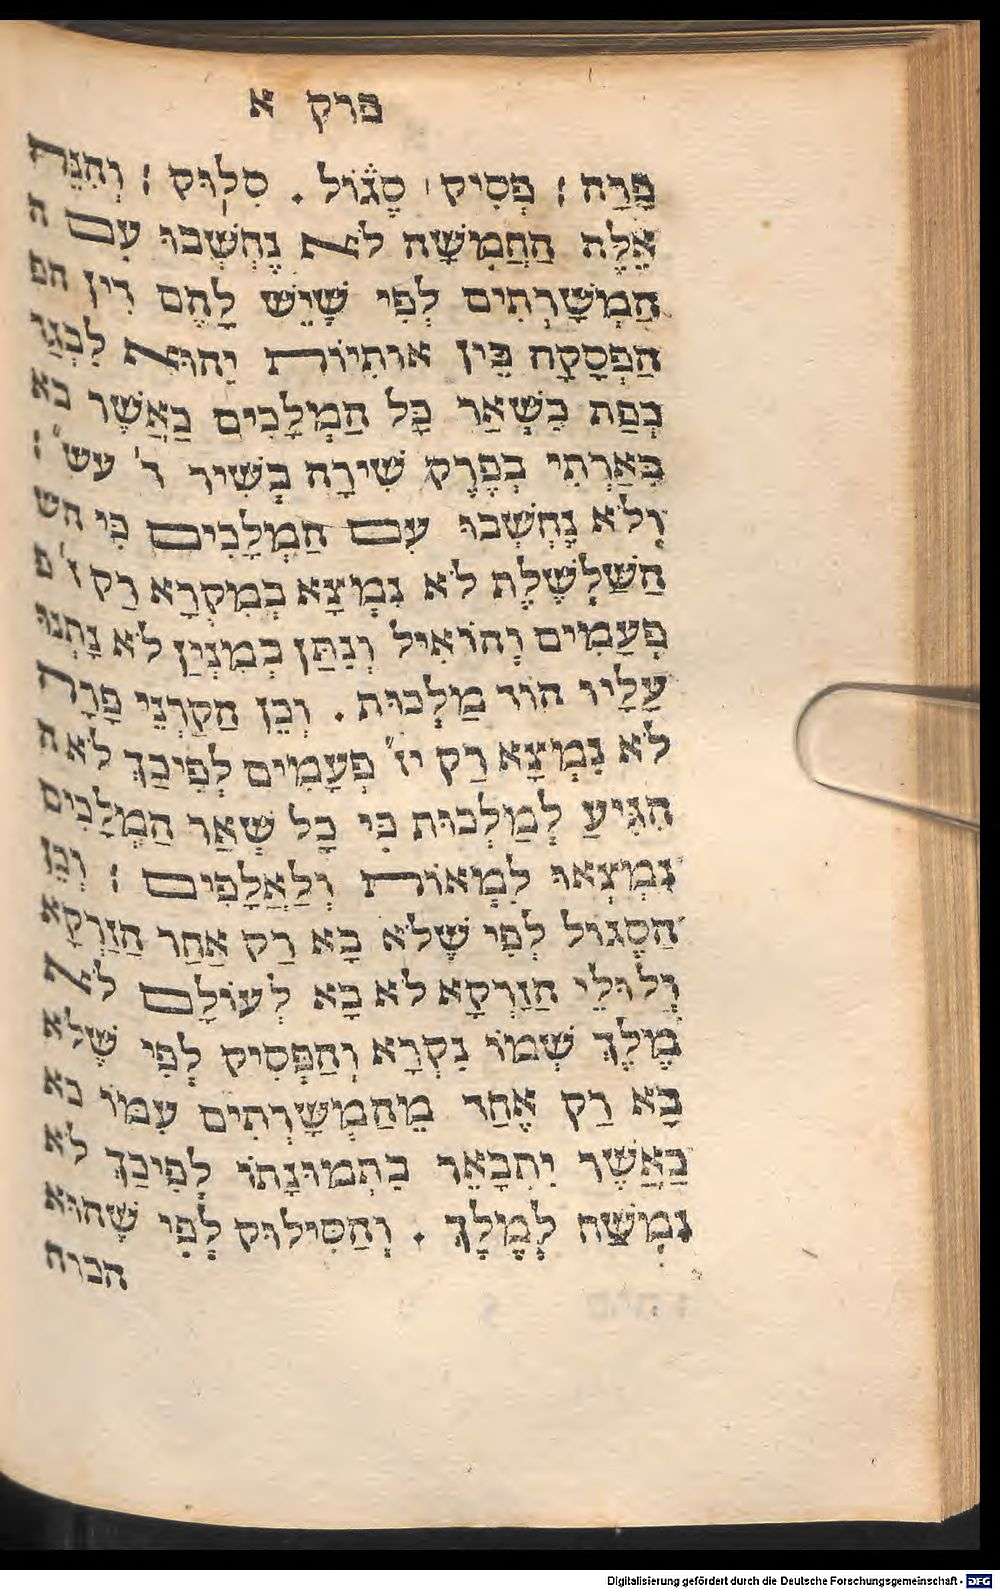 פרק א
פָרָה ׃ פְּסִיק ׀ סֶגוֹל . סִלּוּק ׃ וְהִנֵּה
אֵלֶּה הַחֲמִשָּׁה לֹא נֶחְשְׁבוּ עִם ה
הַמְשָׁרְתִים לְפִי שֶׁיֵּשׁ לָהֶם דִּין הפ
הַפְסָקָה בֵּין אוֹתִיּוֹת יְהוּא לְבְגַד
כְּפַת כִּשְׁאַר כָּל הַמְּלָכִים כַּאֲשֶׁר בא
בֵּאַרְתִּי בְּפֶרֶק שִׁירָה בְּשִׁיר ד' עש" ׃
וְלֹא נֶחְשְׁבוּ עִם הַמְּלָכִים כִּי הש
הַשַּׁלְשֶׁלֶת לֹא נִמְצָא בְּמִקְרָא רַק ז' פ
פְּעָמִים וְהוֹאִיל וְנִתַּן בְּמִנְיָן לֹא נָתְנוּ
עָלָיו הוֹד מַלְכוּת . וְכֵן הַקַּרְנֵי פָרָה
לֹא נִמְצָא רַק יו" פְּעָמִים לְפִיכַךְ לא ה
הִגִּיעַ לְמַלְכוּת כִּי כָּל שְׁאַר הַמְּלָכִים
נִמְצְאוּ לְמֵאוֹת וְלַאֲלָפִים ׃ וְכֵן
הַסֶּגּוֹל לְפִי שֶׁלֹּא בָּא רַק אַחַר הַזַּרְקָא
וְלוּלֵי הַזַּרְקָא לֹא בָּא לְעוֹלָם לֹא
מֶלֶךְ שְׁמוֹ נִקְרָא וְהַפְּסִיק לְפִי שֶׁלֹּא
בָּא רַק אֶחָד מֵהַמְשָׁרְתִים עִמּוֹ בא
כַּאֲשֶׁר יִתְבָּאֵר בִּתְמוּנָתוֹ לְפִיכַךְ לֹא
נִמְשַׁח לְמֶלֶךְ . וְהַסִּילוּק לְפִי שֶׁהוּא
הכרח
Digitalisierung gefördert durch die Deutsche Forschungsgemeinschaft - DFG